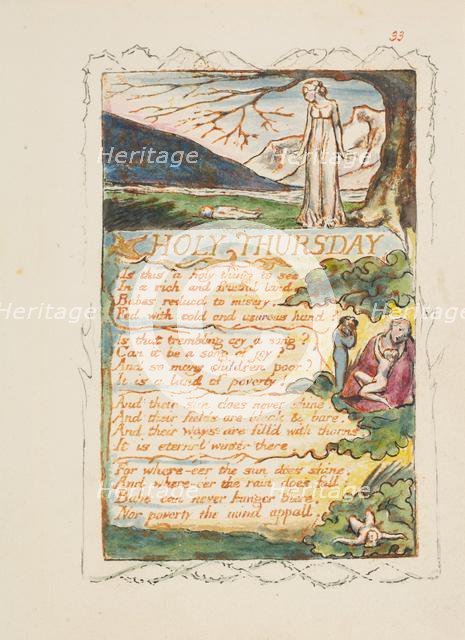 33
HOLY THURSDAY
Is this a holy thing to see,
In a rich and fruitful land,
Babes reducd to misery,
Fed with cold and usurous hand?
Is that trembling cry a song?
Can it be a song of joy?
And so many children poor?
It is a land of poverty!
And their sun does never shine.
And their fields are bleak & bare.
And their ways are fill'd with thorns
It is eternal winter there.
For where-e'er the sun does shine,
And where-e'er the rain does fall:
Babe can never hunger there,
Nor poverty the mind appall.
Heritage
Heritage
Heritage
Heritage
Heritage
Heritage
Heritage
Heritage